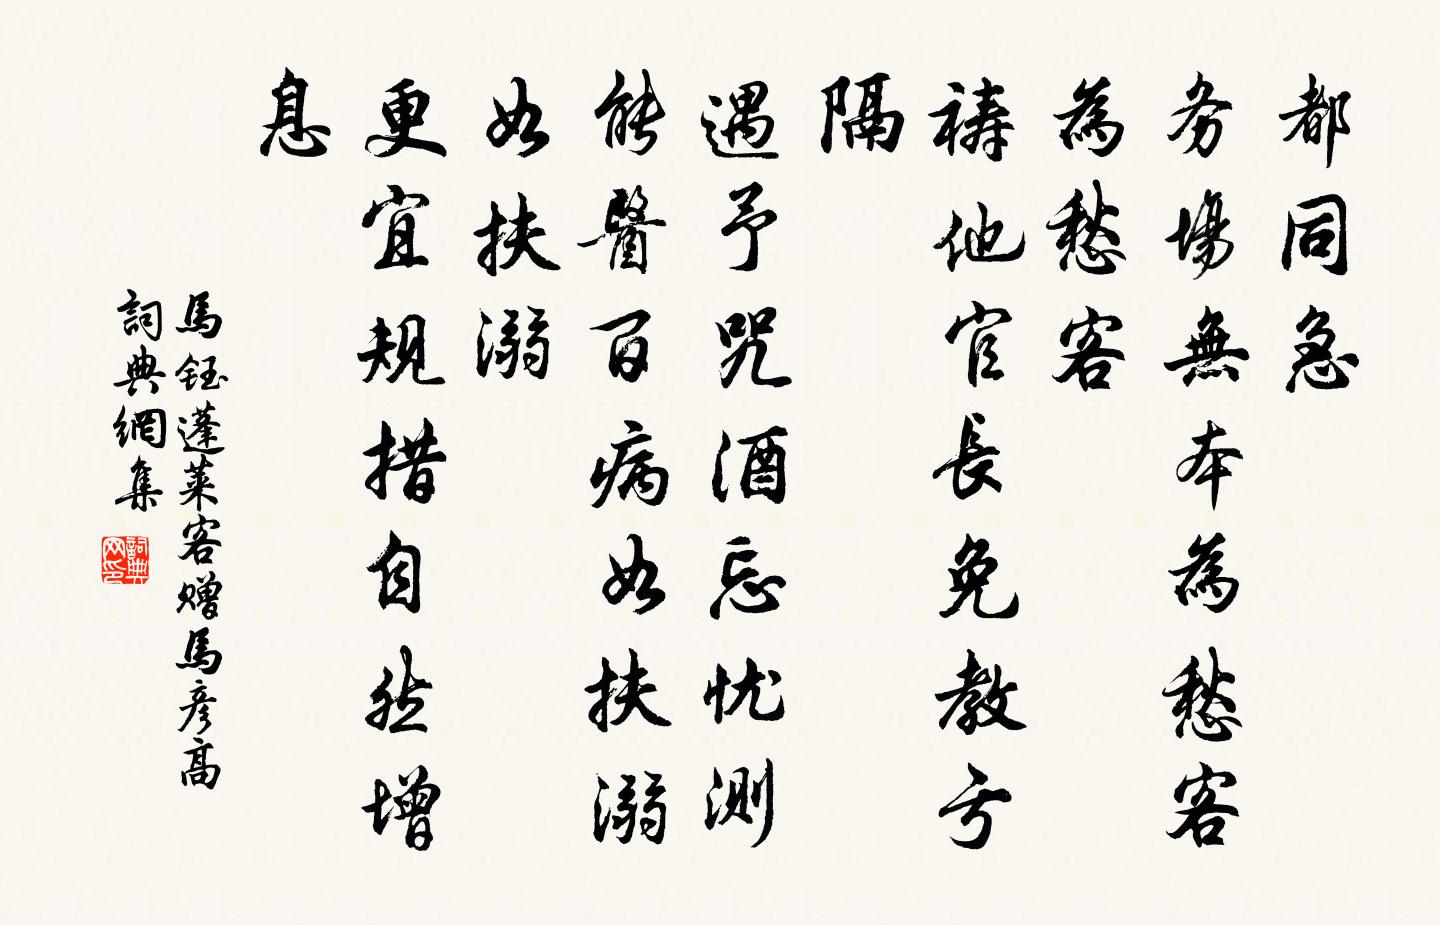 都同急
务場無本為愁客
為愁客
禱他官長免教亏
隔
遇予咒酒忘忧測
能醫百病如扶溺
如扶溺
更宜規措自然增
息
馬鈺蓬莱客赠馬彦高
詞典網集
詞典网印